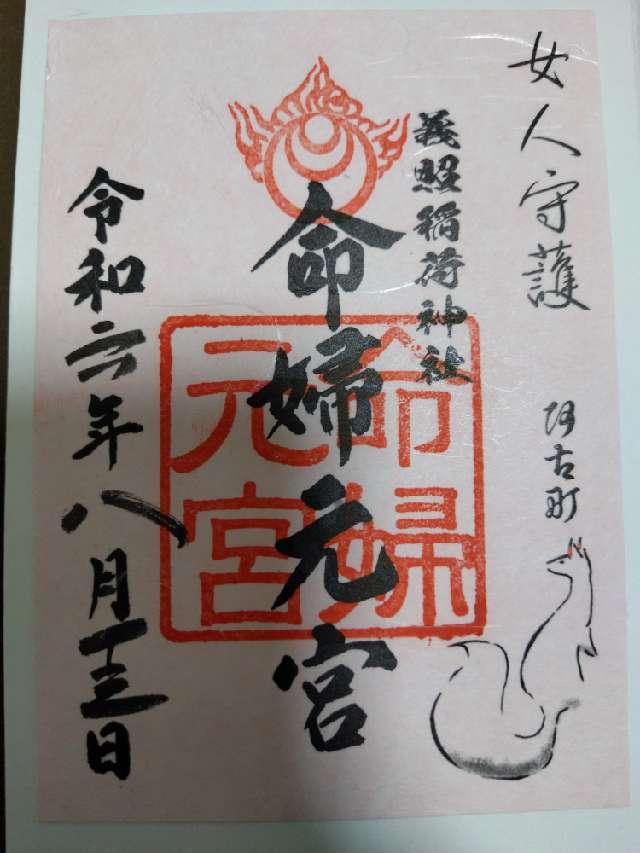 女人守護
阿古町
義照稲荷神社
命婦元宮
命婦
元宮
令和六年八月十三日